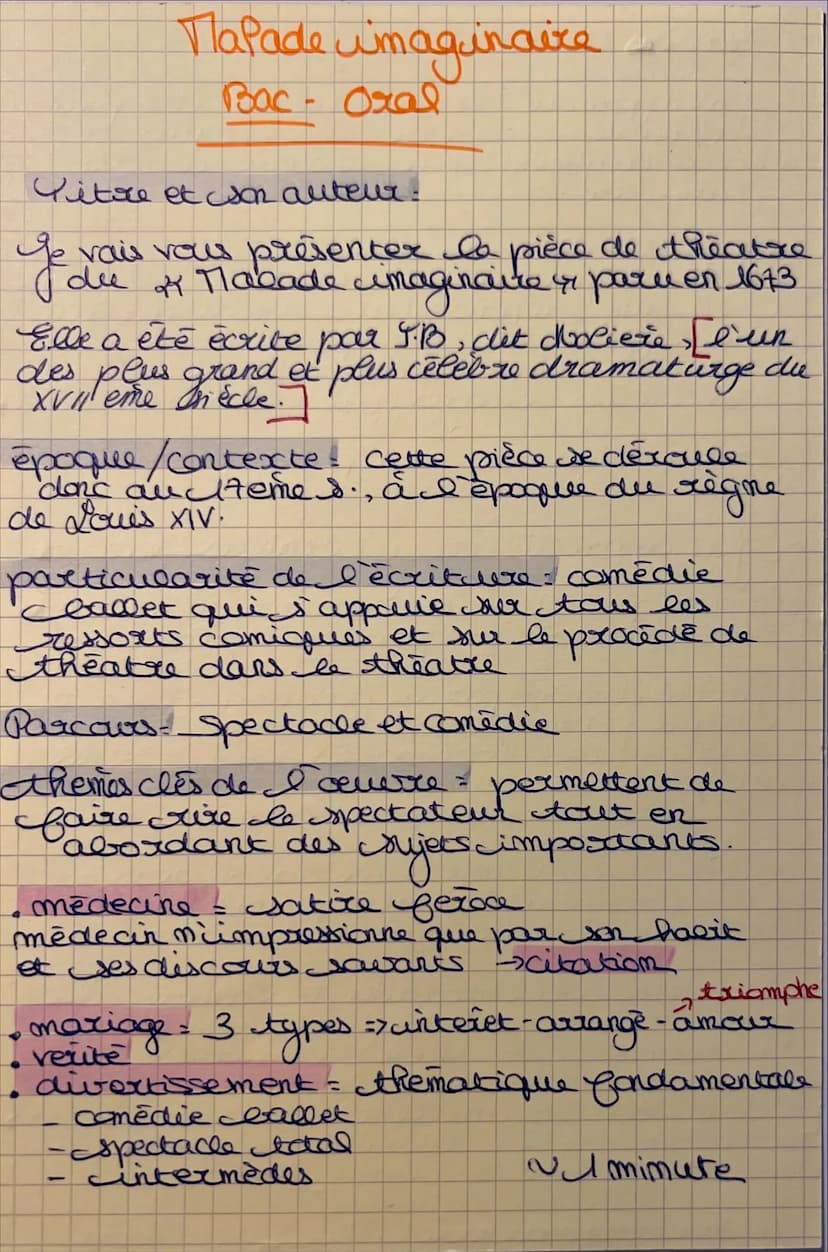 Malade imaginaire
Bac - Oral
Titre et son auteur :
Je vais vous présenter la pièce de théatre
du « Malade imaginaire » paru en 1673
Elle a été écrite par J.B, dit Molière, [l'un
des plus grand et plus célèbre dramaturge du
XVII ème siècle.]
époque/contexte : cette pièce se déroule
donc au 17ème s., à l'époque du règne
de Louis XIV.
particularité de l'écriture = comédie
ballet qui s'appuie sur tous les
ressorts comiques et sur le procédé de
théatre dans le théatre
Parcours = Spectacle et comédie
themes clés de l'œuvre = permettent de
faire rire le spectateur tout en
abordant des sujets importants.
. médecine = satire féroce
médecin n'impressionne que par son habit
et ses discours savants → citation
→ triomphe
. mariage = 3 types => intéret - arrangé - amour
. vérité
. divertissement = thématique fondamentale
- comédie ballet
- spectacle total
- intermèdes
~ 1 minute